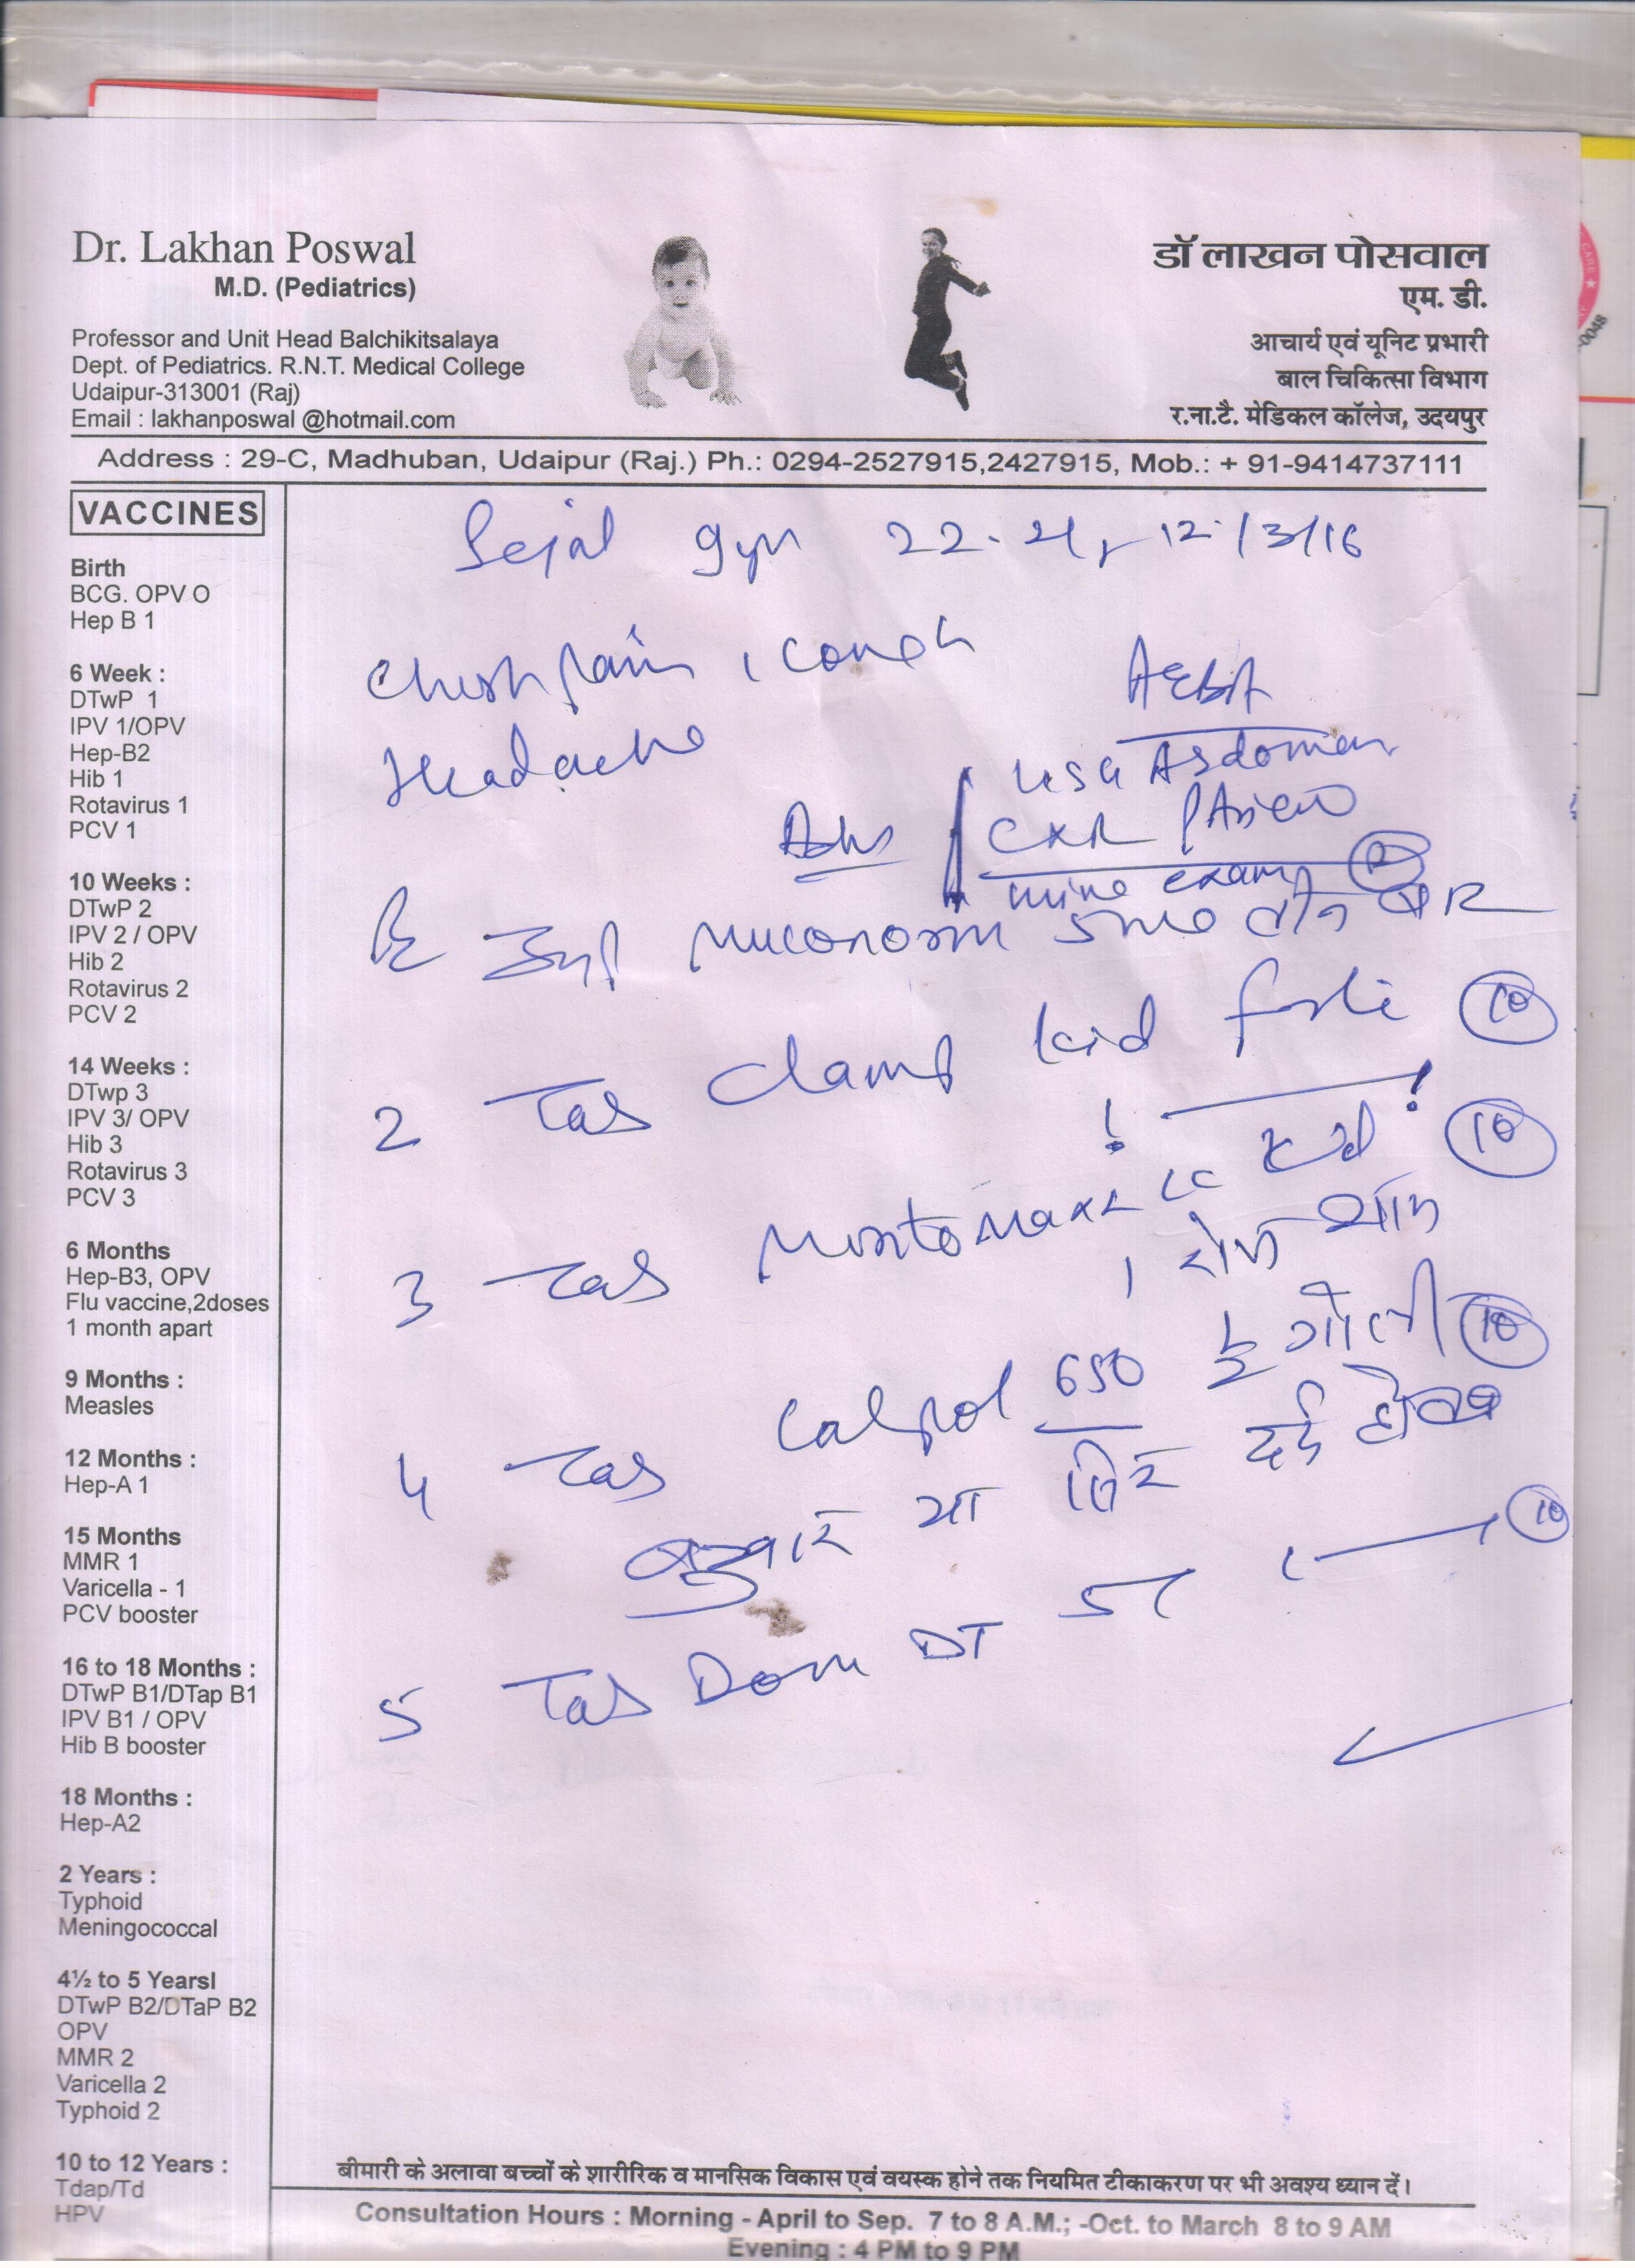 Dr. Lakhan Poswal
M.D. (Pediatrics)
Professor and Unit Head Balchikitsalaya
Dept. of Pediatrics. R.N.T. Medical College
Udaipur-313001 (Raj)
Email : lakhanposwal @hotmail.com
डॉ लाखन पोसवाल
एम. डी.
आचार्य एवं यूनिट प्रभारी
बाल चिकित्सा विभाग
र.ना.टै. मेडिकल कॉलेज, उदयपुर
Address : 29-C, Madhuban, Udaipur (Raj.) Ph.: 0294-2527915,2427915, Mob.: + 91-9414737111
VACCINES
Birth
BCG. OPV O
Hep B 1
6 Week :
DTwP 1
IPV 1/OPV
Hep-B2
Hib 1
Rotavirus 1
PCV 1
10 Weeks :
DTwP 2
IPV 2 / OPV
Hib 2
Rotavirus 2
PCV 2
14 Weeks :
DTwp 3
IPV 3/ OPV
Hib 3
Rotavirus 3
PCV 3
6 Months
Hep-B3, OPV
Flu vaccine,2doses
1 month apart
9 Months :
Measles
12 Months :
Hep-A 1
15 Months
MMR 1
Varicella - 1
PCV booster
16 to 18 Months :
DTwP B1/DTap B1
IPV B1 / OPV
Hib B booster
18 Months :
Hep-A2
2 Years :
Typhoid
Meningococcal
4½ to 5 Yearsl
DTwP B2/DTaP B2
OPV
MMR 2
Varicella 2
Typhoid 2
10 to 12 Years :
Tdap/Td
HPV
Sejal 9yr 12/3/16
Chest pain, cough
Headache
USG Abdomen
CXR PA view
urine exam
Muconorm 5ml तीन बार
2 Tab Clamp kid forte 10
3 Tab Montemax LC 10
1 रोज शाम
4 Tab Calpol 650 ½ गोली 10
बुखार या सिर दर्द हो तब
5 Tab Dom DT 10
बीमारी के अलावा बच्चों के शारीरिक व मानसिक विकास एवं वयस्क होने तक नियमित टीकाकरण पर भी अवश्य ध्यान दें।
Consultation Hours : Morning - April to Sep. 7 to 8 A.M.; -Oct. to March 8 to 9 AM
Evening : 4 PM to 9 PM